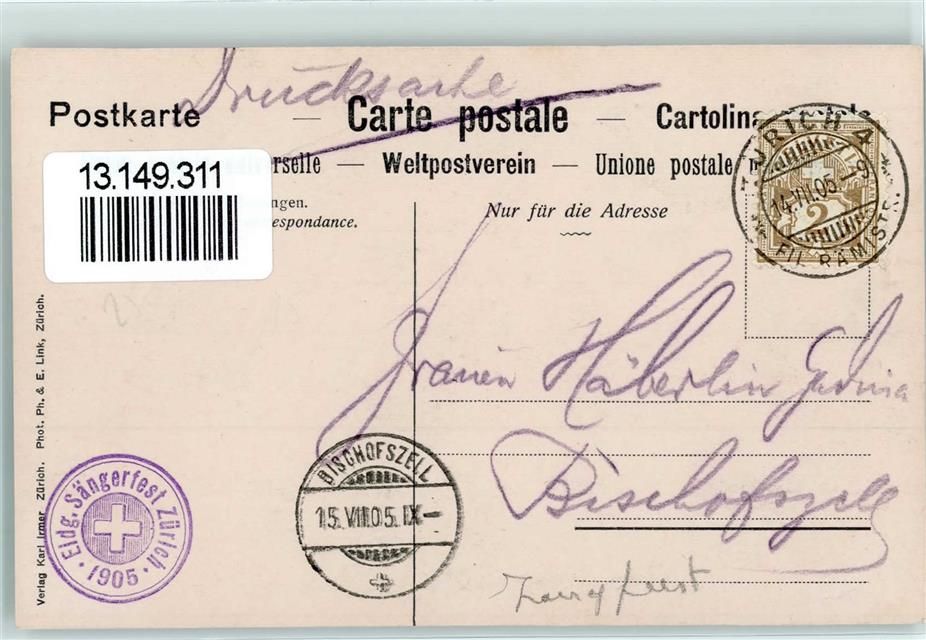 Drucksache
Postkarte — Carte postale — Cartolina postale
13.149.311
erselle — Weltpostverein — Unione postale
ngen.
espondance.
Nur für die Adresse
ZÜRICH 4
14.VIII.05.–9
FIL. RÄMISTR.
2
Frauen Häberlin
Bischofszell
BISCHOFSZELL
15.VIII.05.IX–
Eidg. Sängerfest Zürich
1905
Verlag Karl Irmer, Zürich. Phot. Ph. & E. Link, Zürich.